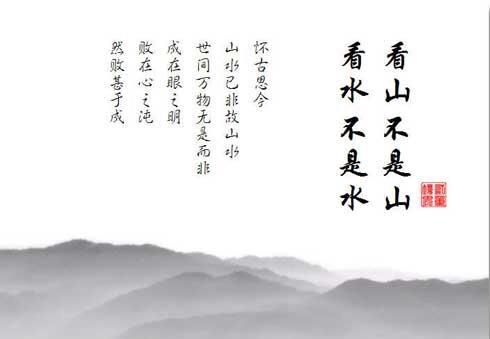 看山不是山
看水不是水
怀古思今
山水已非故山水
世间万物无是而非
成在眼之明
败在心之沌
然败甚于成